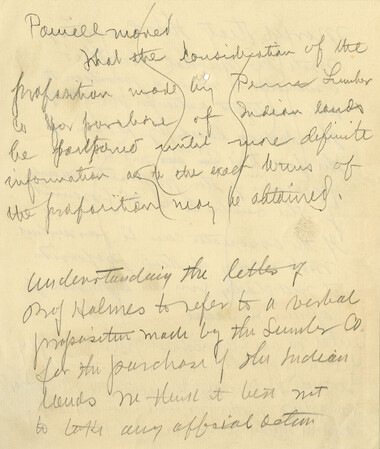 Powell moved
That the consideration of the
proposition made by Penna Lumber
Co for purchase of Indian lands
be postponed until more definite
information as to the exact terms of
the proposition may be obtained.
Understanding the letter of
Prof Holmes to refer to a verbal
proposition made by the Lumber Co.
for the purchase of the Indian
lands we think it best not
to take any official action